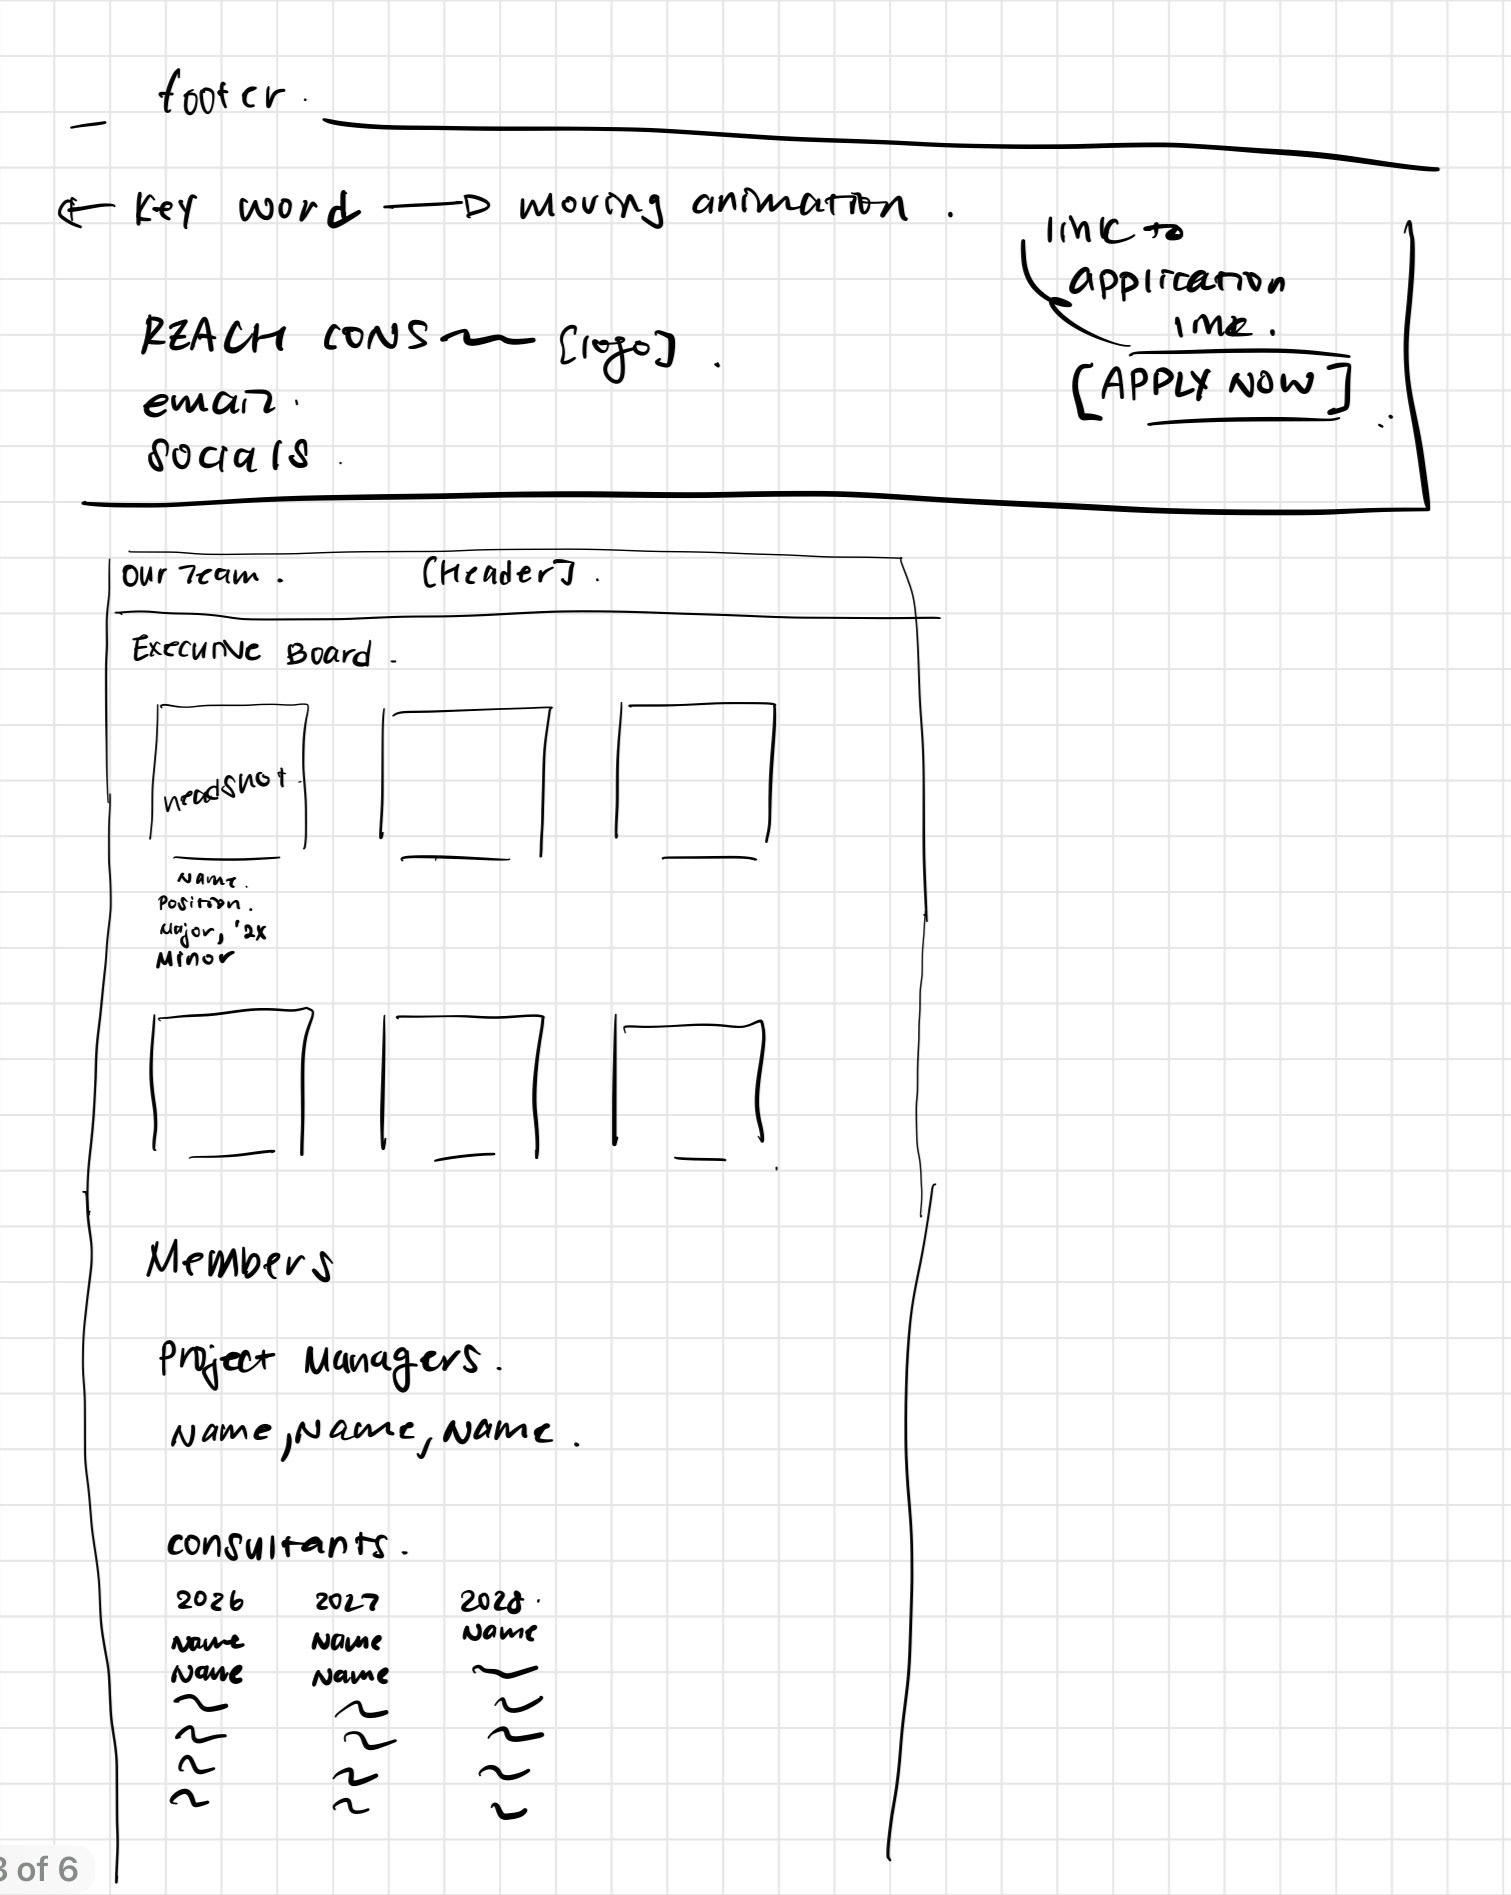 footer.
key word → moving animation.
link to
application
link.
REACH CONS [logo].
[APPLY NOW]
email.
socials.
Our Team. [Header].
Executive Board.
headshot.
Name.
Position.
Major, '2x
Minor
Members
Project Managers.
Name, Name, Name.
consultants.
2026 2027 2028.
Name Name Name
Name Name
3 of 6